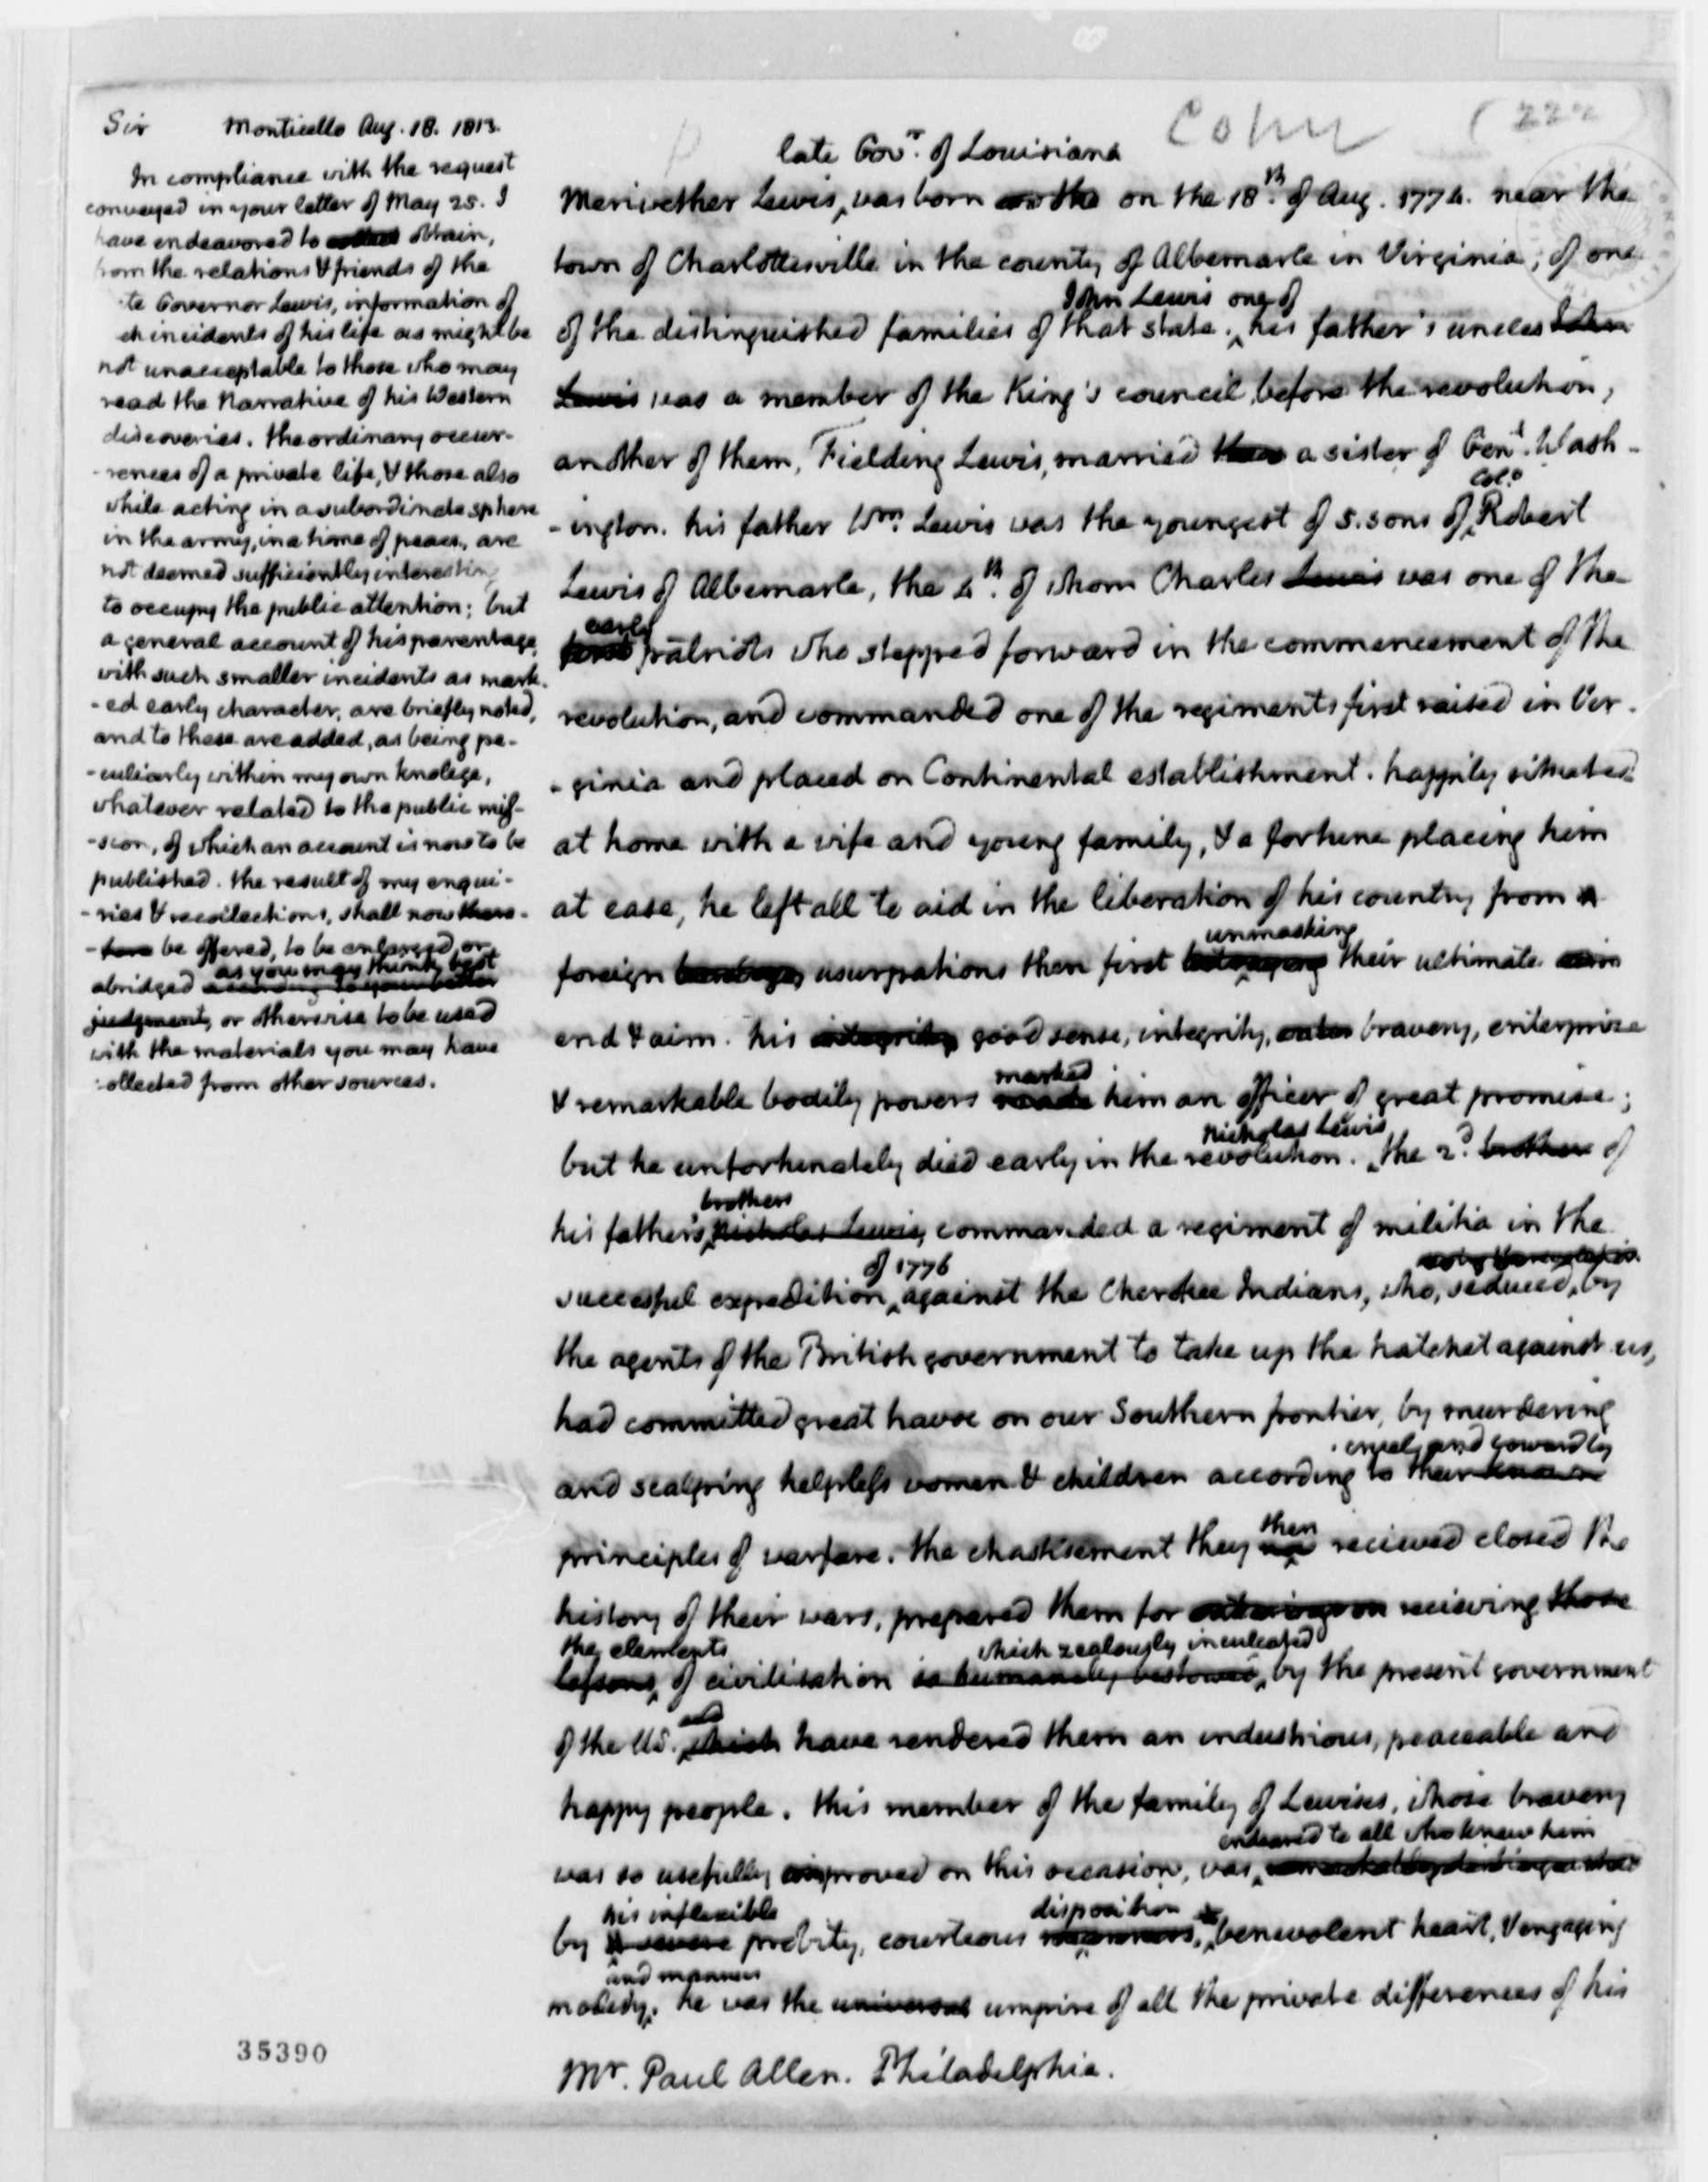 Sir Monticello Aug. 18. 1813.
In compliance with the request
conveyed in your letter of May 25. I
have endeavored to obtain,
from the relations & friends of the
te Governor Lewis, information of
ch incidents of his life as might be
not unacceptable to those who may
read the Narrative of his Western
discoveries. the ordinary occur-
-rences of a private life, & those also
while acting in a subordinate sphere
in the army, in a time of peace, are
not deemed sufficiently interesting
to occupy the public attention; but
a general account of his parentage,
with such smaller incidents as mark-
-ed early character, are briefly noted,
and to these are added, as being pe-
-culiarly within my own knolege,
whatever related to the public mis-
-sion, of which an account is now to be
published. the result of my enqui-
-ries & recollections, shall now there-
-fore be offered, to be enlarged or
as you may think best
abridged according to your better
judgment, or otherwise to be used
with the materials you may have
collected from other sources.
35390
Cohn
(222
late Govr. of Louisiana
Meriwether Lewis, was born on the on the 18th. of Aug. 1774. near the
town of Charlottesville in the county of Albemarle in Virginia, of one
John Lewis one of
of the distinguished families of that state. his father's uncles John
Lewis was a member of the King's council, before the revolution,
another of them, Fielding Lewis, married a sister of Genl. Wash-
Colo.
-ington. his father Wm. Lewis was the youngest of 5. sons of Robert
Lewis of Albemarle, the 4th. of whom Charles Lewis was one of the
early
first patriots who stepped forward in the commencement of the
revolution, and commanded one of the regiments first raised in Vir-
-ginia and placed on Continental establishment. happily situated
at home with a wife and young family, & a fortune placing him
at ease, he left all to aid in the liberation of his country from
unmasking
foreign usurpations then first their ultimate aim
end & aim. his integrity good sense, integrity, bravery, enterprize
marked
& remarkable bodily powers made him an officer of great promise;
but he unfortunately died early in the revolution. Nicholas Lewis the 2d. brother of
brothers
his father's Nicholas Lewis, commanded a regiment of militia in the
of 1776
succesful expedition against the Cherokee Indians, who, seduced, by
the agents of the British government to take up the hatchet against us,
had committed great havoc on our Southern frontier, by murdering
cruel and cowardly
and scalping helpless women & children according to their known
then
principles of warfare. the chastisement they recieved closed the
history of their wars, prepared them for entering on recieving those
the elements which zealously inculcated
lessons of civilisation so humanely bestowed by the present government
of the US. which have rendered them an industrious, peaceable and
happy people. this member of the family of Lewises, whose bravery
endeared to all who knew him
was so usefully proved on this occasion, was remarkably distinguished
his inflexible disposition
by a severe probity, courteous manners, benevolent heart, & engaging
and manners
modesty. he was the universal umpire of all the private differences of his
Mr. Paul Allen. Philadelphia.